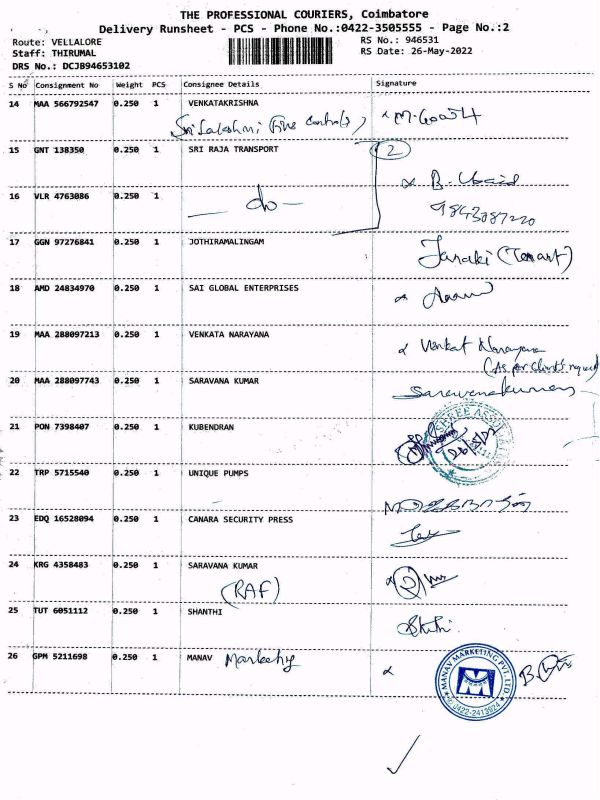 THE PROFESSIONAL COURIERS, Coimbatore
Delivery Runsheet - PCS - Phone No.:0422-3505555 - Page No.:2
Route: VELLALORE
RS No.: 946531
Staff: THIRUMAL
RS Date: 26-May-2022
DRS No.: DCJB94653102
S No Consignment No Weight PCS Consignee Details Signature
14 MAA 566792547 0.250 1 VENKATAKRISHNA
15 GNT 138350 0.250 1 SRI RAJA TRANSPORT 2
16 VLR 4763086 0.250 1 — do —
9843087220
17 GGN 97276841 0.250 1 JOTHIRAMALINGAM
Janaki
18 AMD 24834970 0.250 1 SAI GLOBAL ENTERPRISES
19 MAA 288097213 0.250 1 VENKATA NARAYANA
Venkat Narayana
(As per Client's request
20 MAA 288097743 0.250 1 SARAVANA KUMAR
Saravanakumar
21 PON 7398407 0.250 1 KUBENDRAN
22 TRP 5715540 0.250 1 UNIQUE PUMPS
23 EDQ 16528094 0.250 1 CANARA SECURITY PRESS
24 KRG 4358483 0.250 1 SARAVANA KUMAR
(RAF)
25 TUT 6051112 0.250 1 SHANTHI
26 GPM 5211698 0.250 1 MANAV Marketing
MANAV MARKETING PVT. LTD.
0422-2413924